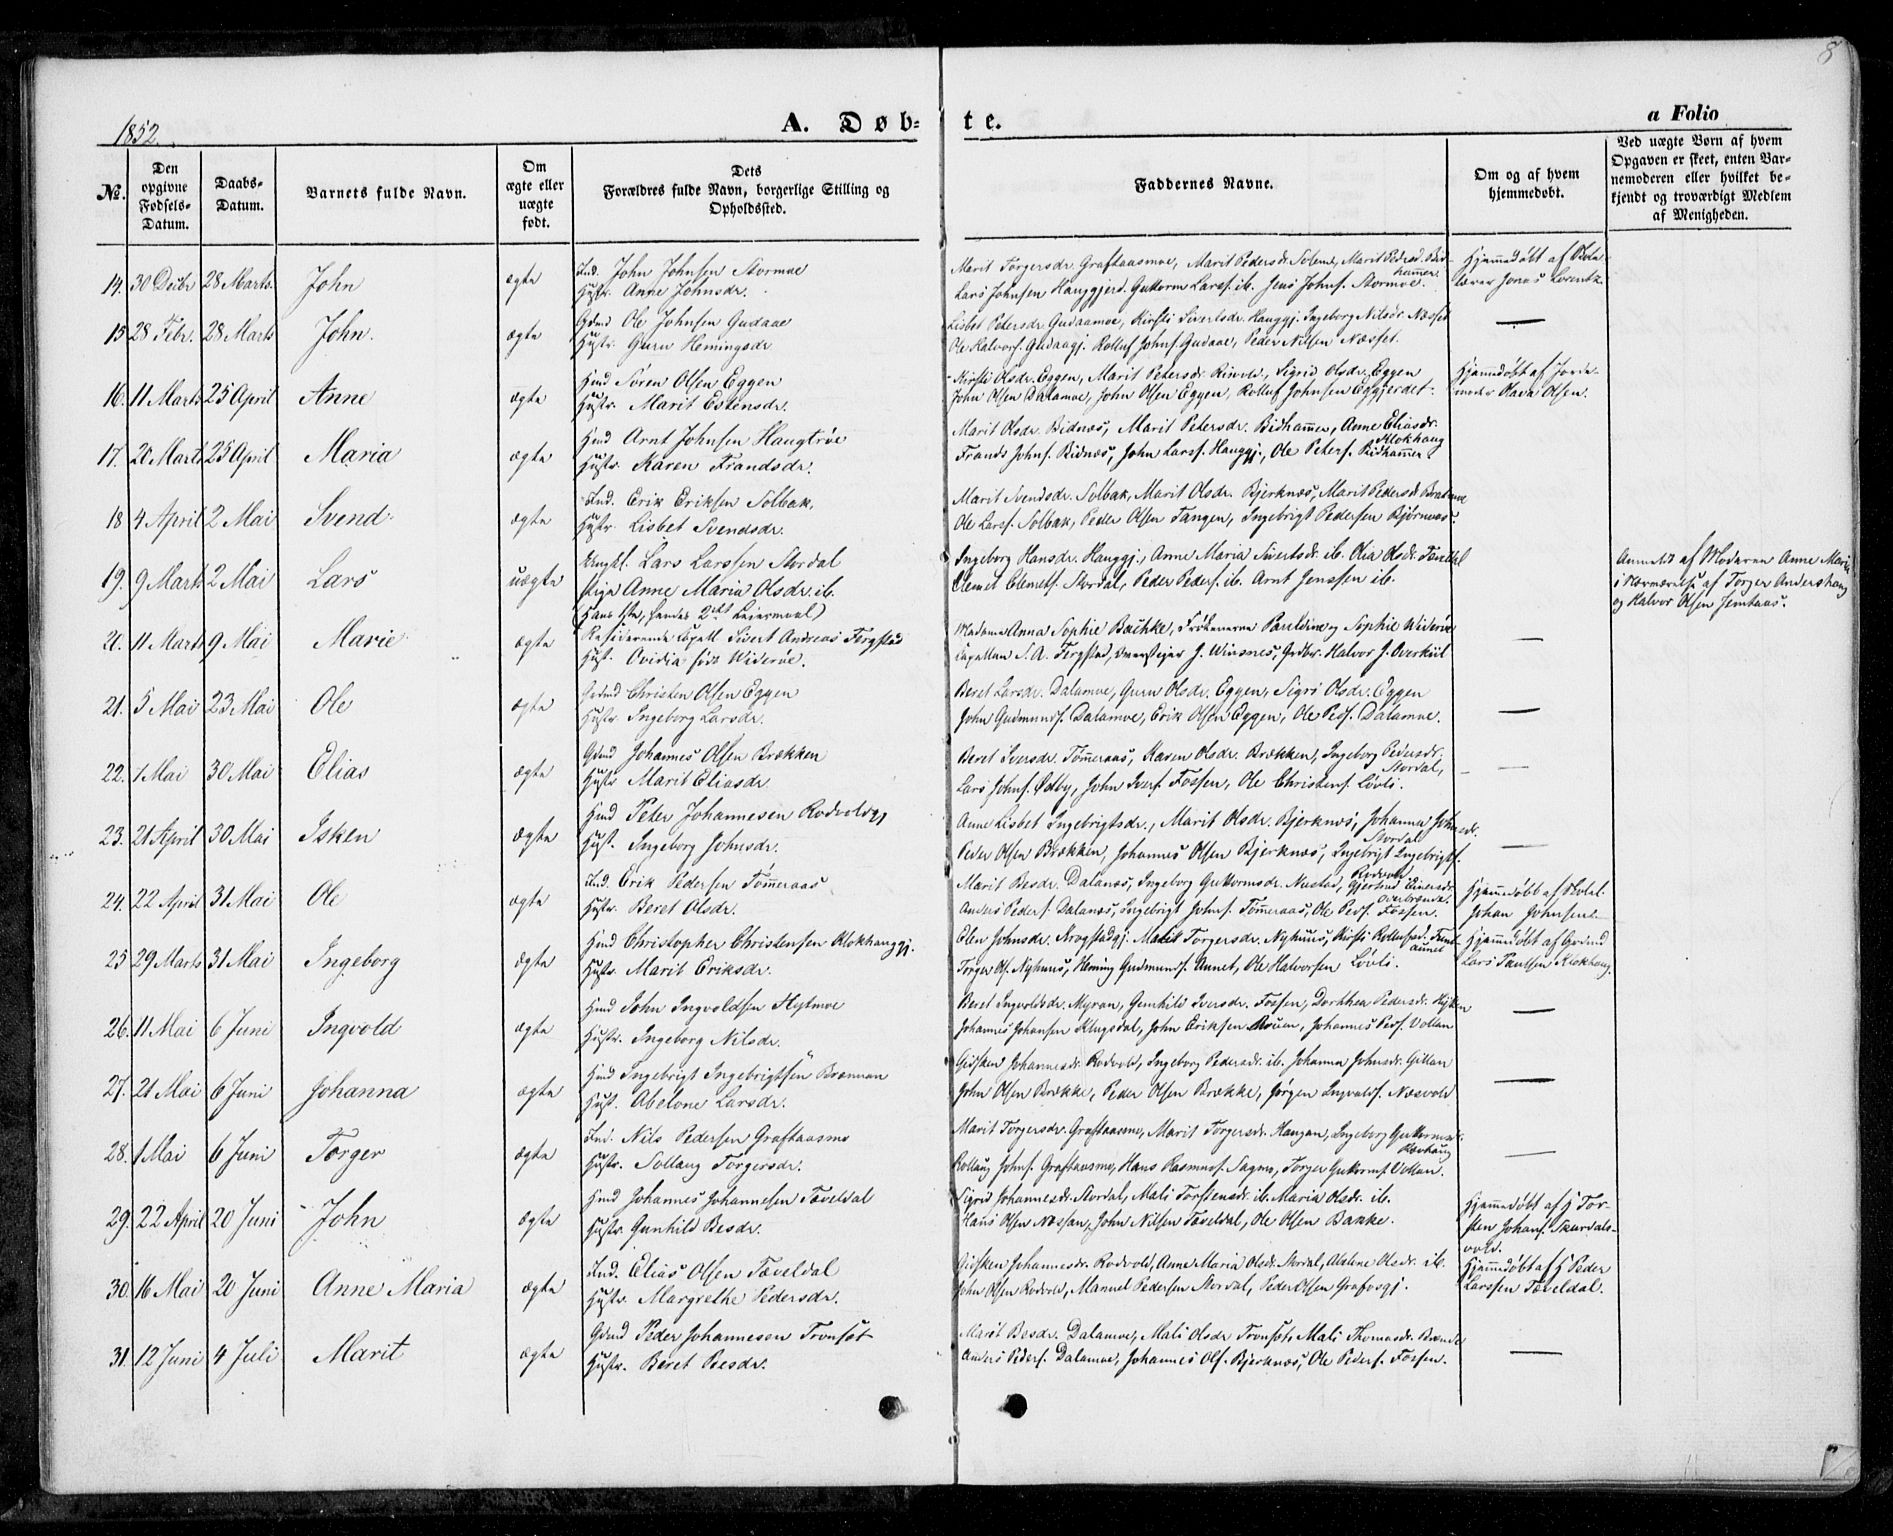 8
1852.
A. Døb-
te.
a Folio
№.
Den opgivne Fødsels-Datum.
Daabs-Datum.
Barnets fulde Navn.
Om ægte eller uægte født.
Dets Forældres fulde Navn, borgerlige Stilling og Opholdssted.
Faddernes Navne.
Om og af hvem hjemmedøbt.
Ved uægte Børn af hvem Opgaven er skeet, enten Barnemoderen eller hvilket bekjendt og troværdigt Medlem af Menigheden.
14. 30 Decbr 28 Marts. John ægte Ind. John Johnsen Stormoe
Hustr. Anne Johnsdr.
Marit Torgersdr. Graftaasmoe, Marit Pedersdr. Solem, Marit Pedersd. Bidhammer
Lars Johnsen Hauggjerd. Guttorm Larss. ib. Jens Johns. Stormoe.
Hjemmedøbt af Skolelærer Jonas Lorentz.
15 28 Febr. 28 Marts John. ægte Gdmd Ole Johnsen Gudaae
Hustr. Guru Hemingsdr
Lisbet Petersdr Gudaamoe, Kirsti Sivertsdr. Hauggj. Ingeborg Nilsdr Næsset
Ole Halvors. Gudaagj. Rolluf Johns. Gudaae, Peder Nilsen Næsset.
—
16. 11 Marts 25 April Anne ægte Hmd Søren Olsen Eggen
Hustr. Marit Estensdr.
Kirsti Olsdr. Eggen, Marit Petersdr Rinvold, Sigrid Olsdr. Eggen
John Olsen Dalamoe, John Olsen Eggen, Rolluf Johnsen Eggjerdet.
Hjemmedøbt af Jordemoder Olava Olsen.
17. 20 Marts 25 April Maria ægte Hmd Arnt Johnsen Haugtrøe
Hustr. Karen Frandsdr.
Marit Olsdr. Bidnæs, Marit Petersdr. Bidhammer, Anne Eliasdr. Klokhaug
Frands Johns. Bidnæs, John Larss. Hauggj., Ole Peters. Bidhammer
18 4 April 2 Mai Svend ægte Ind. Erik Eriksen Solbak,
Hustr. Lisbet Svendsdr.
Marit Svendsdr. Solbak, Marit Olsdr. Bjerknæs, Marit Pedersdr
Ole Larss. Solbak, Peder Olsen Tangen, Ingebrigt Pedersen Bjørnaas.
19. 9 Marts 2 Mai Lars uægte Ungkl. Lars Larssen Stordal
Pige Anne Maria Olsdr. ib.
(Hans 1ste, hendes 2det Leiermaal)
Ingeborg Hansdr. Hauggj., Anne Maria Sivertsdr. ib. Olia Olsdr. Tæveldal
Clemet Clemets. Stordal, Peder Peders. ib. Arnt Jenssen ib.
Anmeldt af Moderen Anne Maria
i Nærværelse af Torger Andershaug
og Halvor Olsen Jemtaas.
20. 11 Marts 9 Mai Marie ægte Residerende Capell. Sivert Andreas Fergstad
Hust. Ovidia født Widerøe.
Madame Anna Sophie Bachke, Frøkenerne Pauline og Sophie Widerøe
Capellan S. A. Fergstad, J. Winsnes, Grdbr. Halvor J. Overkiil
—
21. 5 Mai 23 Mai Ole ægte Gdmd Christen Olsen Eggen
Hustr. Ingeborg Larsdr.
Beret Larsdr. Dalamoe, Guru Olsdr. Eggen, Sigri Olsdr. Eggen
John Gudmunds. Dalamoe, Erik Olsen Eggen, Ole Peds. Dalamoe.
—
22. 1 Mai 30 Mai Elias ægte Gdmd Johannes Olsen Brækken
Hustr Marit Eliasdr
Beret Iversdr. Tømmeraas, Karen Olsdr. Brækken, Ingeborg Pedersdr. Stordal,
Lars Johns. Ødby, John Ivers. Fossen, Ole Christens. Løvli.
—
23. 21 April 30 Mai Isken ægte Hmd Peter Johannesen Rodvoldgj
Hust. Ingeborg Johnsdr.
Anne Lisbet Ingebrigtsdr., Marit Olsdr. Bjerknæs, Johanna Johnsdr. Stordal
Peder Olsen Brækken, Johannes Olsen Bjerknæs, Ingebrigt Ingebrigts. Rodvold
—
24. 22 April 31 Mai Ole ægte Ind. Erik Pedersen Tømmeraas
Hustr. Beret Olsdr.
Marit Besdr. Dalanæs, Ingeborg Guttormsdr. Nustad, Gjertrud Einersdr.
Anders Peders. Dalanæs, Ingebrigt Johns. Tømmeraas, Ole Peds. Fossen.
Hjemmedøbt af Skolel. Johan Johnsen
25 29 Marts 31 Mai Ingeborg ægte Hmd Christopher Christensen Klokhauggj.
Hustr. Marit Eriksdr.
Elen Johnsdr. Krogstadgj. Malit Torgersdr. Nyhuus, Kirsti Rollufsd.
Torger Ols. Nyhuus, Heming Gudmunds. Aunet, Ole Halvorsen Løvli.
Hjemmedøbt af Gdmd Lars Paulsen Klokhaug.
26. 11 Mai 6 Juni Ingvold ægte Hmd John Ingvoldsen Flytmoe
Hustr. Ingeborg Nilsdr.
Beret Ingvoldsdr. Myran, Gunhild Iversdr. Fossen, Dorthea Pedersdr.
Johannes Johansen Klugsdal, John Eriksen Rouen, Johannes Peds. Vollan
—
27. 21 Mai 6 Juni Johanna ægte Hmd Ingebrigt Ingebrigtsen Brennan
Hust. Abelone Larsdr.
Gidsken Johannesdr. Rodvold, Ingeborg Pedersdr. ib. Johanna Johnsdr. Gillan
John Olsen Brække, Peder Olsen Brække, Jørgen Ingvalds. Næsvold
—
28. 1 Mai 6 Juni Torger ægte Ind. Nils Pedersen Graftaasmo
Hustr. Sollaug Torgersdr.
Marit Torgersdr. Graftaasmo, Marit Torgersdr. Haugan, Ingeborg Guttormsdr.
Rollaug Johns. Graftaasmo, Hans Rasmuss. Sagmo, Torger Guttorms. Vollan.
—
29. 22 April 20 Juni John ægte Hmd Johannes Johannesen Tæveldal
Hustr Gunhild Besdr.
Sigrid Johannesdr. Stordal, Mali Torstensdr. ib. Maria Olsdr. ib.
Hans Olsen Næssan, John Nilsen Tæveldal, Ole Olsen Bakke.
Hjemmedøbt af Hj Torsten Johans. Skurdalsvold.
30. 16 Mai 20 Juni Anne Maria ægte Ind. Elias Olsen Tæveldal
Hustr. Margrethe Pedersdr.
Gidsken Johannesdr. Rodvold, Anne Maria Olsdr. Stordal, Abelone Olsdr. ib.
John Olsen Rodvold, Manuel Pedersen Stordal, Peder Olsen Grafosgj.
Hjemmedøbt af Hj Peder Larssen Tæveldal.
31. 12 Juni 4 Juli Marit ægte Gdmd Peder Johannesen Tronset
Hustr. Beret Besdr.
Marit Besdr. Dalamoe, Mali Olsdr Tronset, Mali Thomasdr. Brende
Anders Peders. Dalamoe, Johannes Ols. Bjerknæs, Ole Peders. Fossen.
—